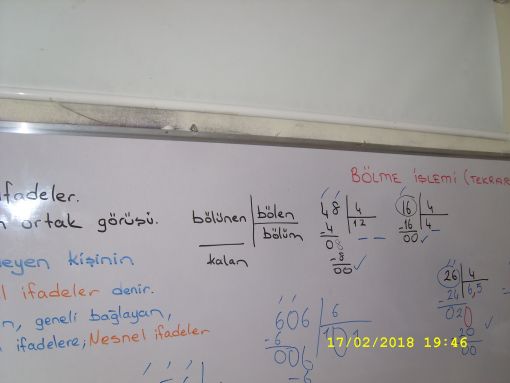 BÖLME İŞLEMİ (TEKRAR
ifadeler.
ortak görüşü.
kişinin
ifadeler denir.
geneli bağlayan,
ifadelere; Nesnel ifadeler
bölünen bölen
bölüm
kalan
48 4
-4 12
08
-8
00
16 4
-16 4
00
26 4
-24 6,5
020
20
00
606 6
-6 101
006
-6
17/02/2018 19:46